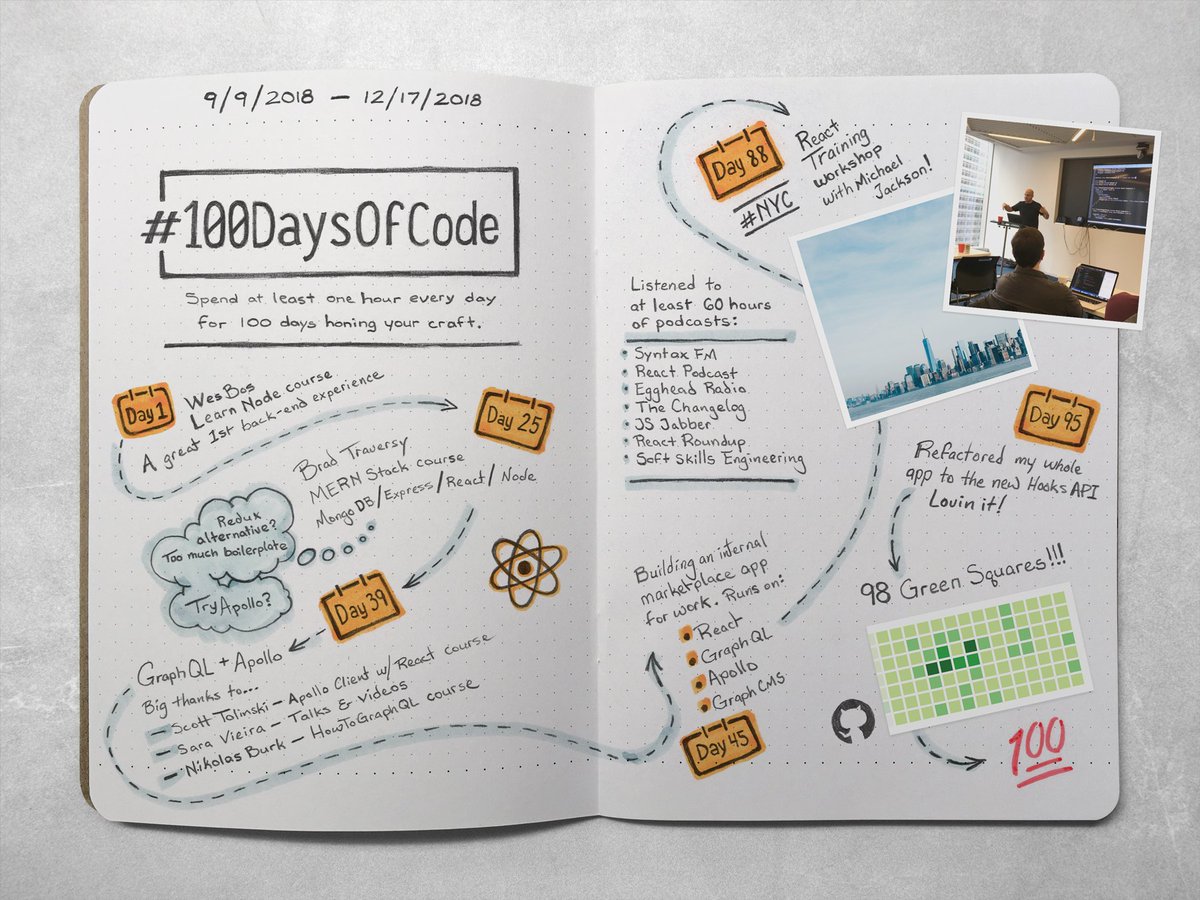 9/9/2018 — 12/17/2018
#100DaysOfCode
Spend at least one hour every day
for 100 days honing your craft.
Day 1
WesBos
Learn Node course
A great 1st back-end experience
Day 25
Brad Traversy
MERN Stack course
Mongo DB/Express/React/Node
Redux
alternative?
Too much boilerplate
Try Apollo?
Day 39
GraphQL + Apollo
Big thanks to...
Scott Tolinski — Apollo Client w/ React course
Sara Vieira — Talks & videos
Nikolas Burk — HowToGraphQL course
Day 45
Building an internal
marketplace app
for work. Runs on:
React
GraphQL
Apollo
GraphCMS
Listened to
at least 60 hours
of podcasts:
Syntax FM
React Podcast
Egghead Radio
The Changelog
JS Jabber
React Roundup
Soft Skills Engineering
Day 88
#NYC
React
Training
workshop
with Michael
Jackson!
Day 95
Refactored my whole
app to the new Hooks API
Lovin it!
98 Green Squares!!!
100